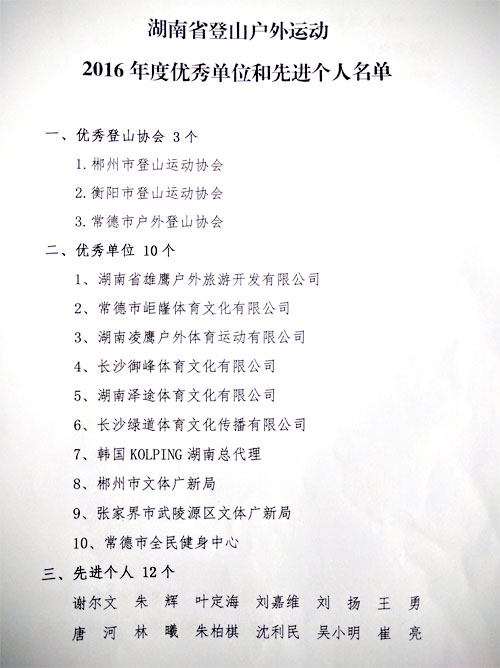 湖南省登山户外运动
2016年度优秀单位和先进个人名单
一、优秀登山协会 3个
1.郴州市登山运动协会
2.衡阳市登山运动协会
3.常德市户外登山协会
二、优秀单位 10个
1、湖南省雄鹰户外旅游开发有限公司
2、常德市岠嶐体育文化有限公司
3、湖南凌鹰户外体育运动有限公司
4、长沙御峰体育文化有限公司
5、湖南泽途体育文化有限公司
6、长沙绿道体育文化传播有限公司
7、韩国KOLPING湖南总代理
8、郴州市文体广新局
9、张家界市武陵源区文体广新局
10、常德市全民健身中心
三、先进个人 12个
谢尔文 朱 辉 叶定海 刘嘉维 刘 扬 王 勇
唐 河 林 曦 朱柏棋 沈利民 吴小明 崔 亮